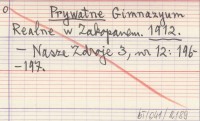 Prywatne Gimnazyum
Realne w Zakopanem. 1912.
— Nasze Zdroje 3, nr 12: 196-
-197.